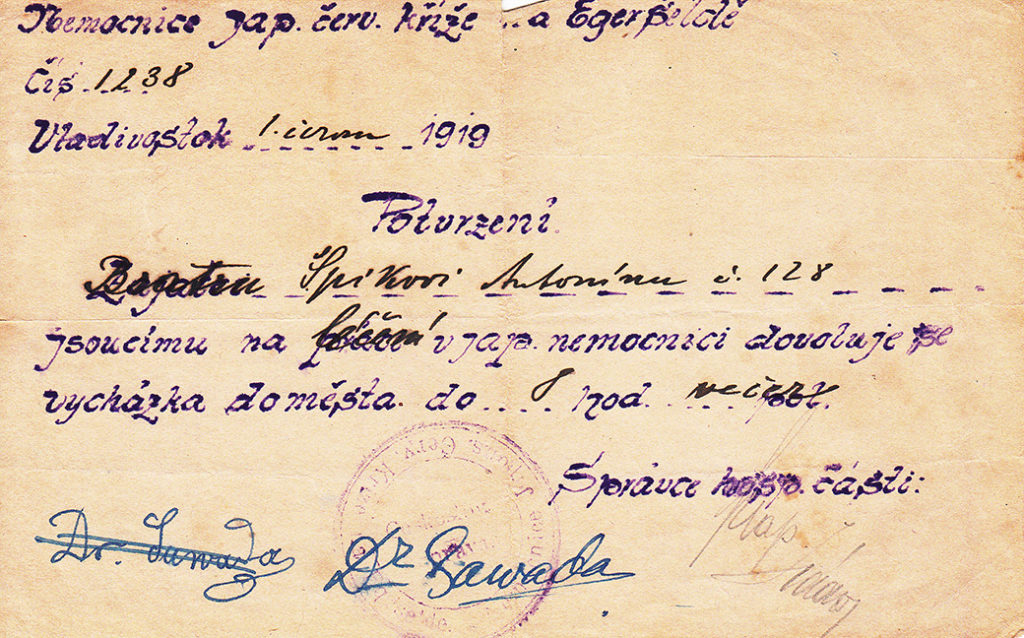 Nemocnice jap. červ. kříže a Egeršeldě
Čís. 1238
Vladivostok 1. červn 1919
Potvrzení.
Bratru Špikovi Antonínu č. 128
jsoucímu na léčení v jap. nemocnici dovoluje se
vycházka do města. do 8 hod. večer
Správce hosp. části:
Dr. Sawada
Dr Sawada